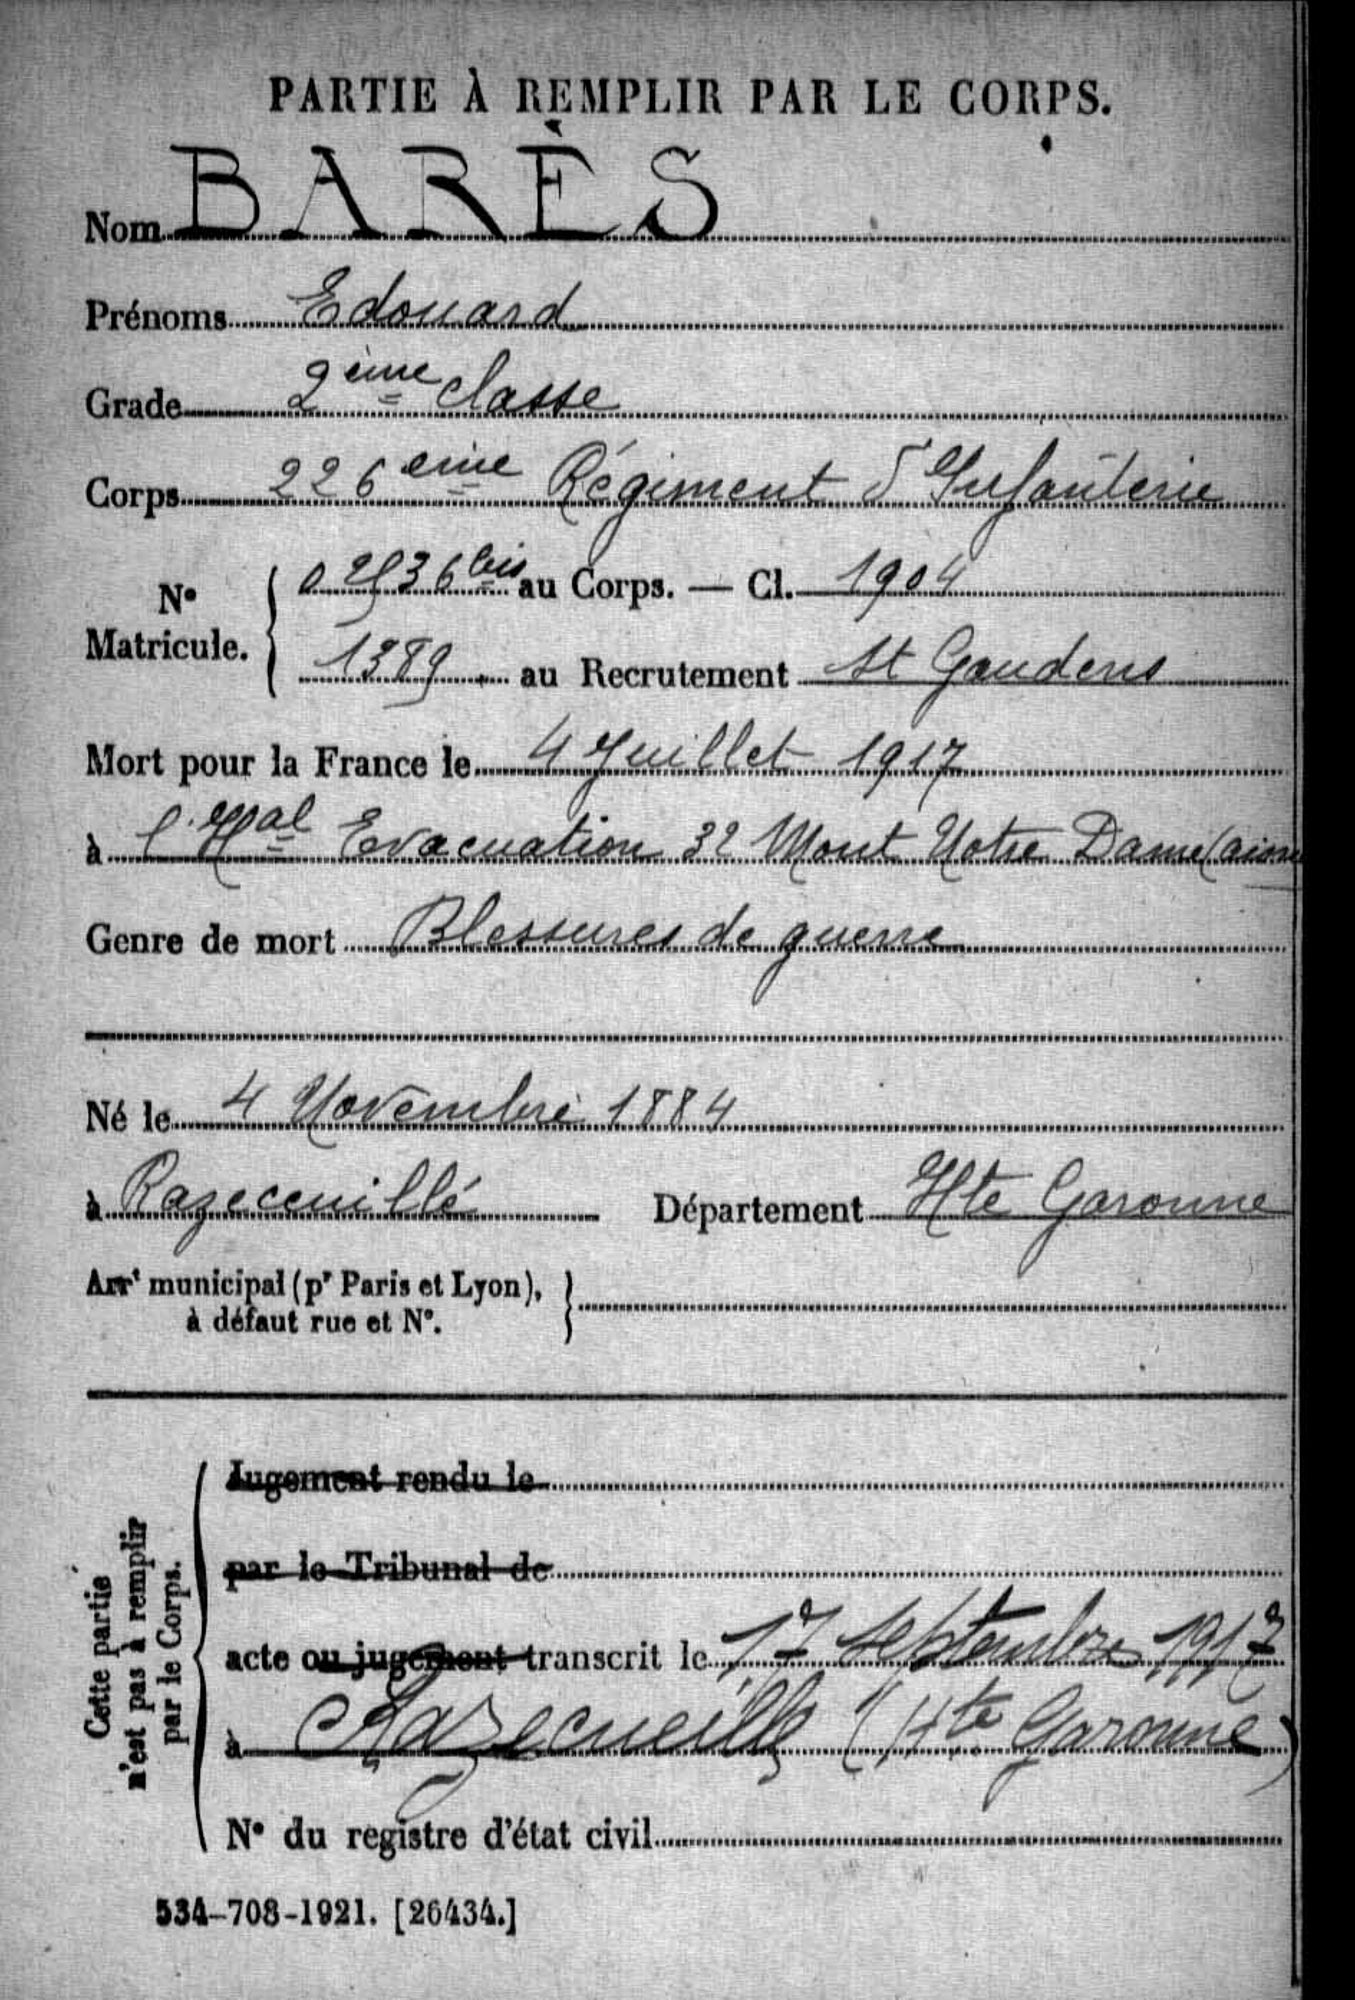 PARTIE À REMPLIR PAR LE CORPS.
Nom BARÈS
Prénoms Edouard
Grade 2ème classe
Corps 226eme Régiment d'Infanterie
N° Matricule. au Corps. — Cl. 1904
1389 au Recrutement St Gaudens
Mort pour la France le 4 Juillet 1917
à l'Hal Evacuation 32 Mont Notre Dame (aisne
Genre de mort Blessures de guerre
Né le 4 Novembre 1884
à Razecueillé Département Hte Garonne
Arrt municipal (pr Paris et Lyon),
à défaut rue et N°.
Cette partie
n'est pas à remplir
par le Corps.
Jugement rendu le
par le Tribunal de
acte ou jugement transcrit le 17 septembre 1917
à Razecueillé (Hte Garonne)
N° du registre d'état civil
534-708-1921. [26434.]